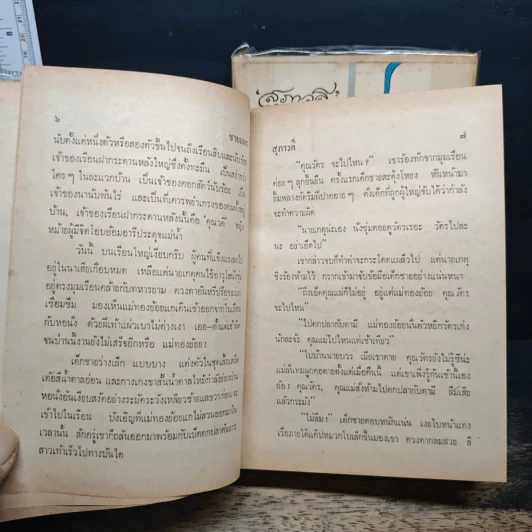 ๖
นับตั้งแต่หนึ่งตัวหรือสองตัวขึ้นไปจนถึงเรือนสิบและนับร้อย
เจ้าของเรือนฝากระดานหลังใหญ่ซึ่งตั้งทะมึน เป็นสง่ากว่า
ใคร ๆ ในละแวกบ้าน เป็นเจ้าของคอกสัตว์นับร้อย เป็น
เจ้าของนานับพันไร่ และเป็นที่เคารพยำเกรงของคนทั้ง
บ้าน, เจ้าของเรือนฝากระดานหลังนั้นคือ "คุณวดี" หญิง
หม้ายผู้มีจิตโอบอ้อมอารีประดุจแม่น้ำ
วันนี้ บนเรือนใหญ่เงียบกริบ ผู้คนที่แข็งแรงลงไป
อยู่ในนาเสียเกือบหมด เหลือแต่นายเกตุ
อยู่ตรงมุมเรือนคล้ายกับทหารยาม ดวงตาอันหรี่ปรือของแก
เชื่อมซึม มองเห็นแม่ทองย้อยแกเดินเข้าออกครัวไป
กับหอนั่ง ด้วยฝีเท้าแผ่วเบาไม่ต่างเงา เออ—ตั้งแต่เช้า
จนป่านนี้งานยังไม่เสร็จอีกหรือ แม่ทองย้อย!
เด็กชายร่างเล็ก แบบบาง แต่งตัวในชุดเสื้อเชิ้ต
เข้าไปในเรือน บังเอิญที่แม่ทองย้อยแกไม่สวนออกมาใน
เวลานั้น สักครู่เขาก็กลับออกมาพร้อมกับเบ็ดตกปลาคันยาว
สาวเท้าเร็วไปทางบันได
สุภาวดี
๗
"คุณวัตร จะไปไหน?" เขาร้องทักจากมุมเรือน
ค่อย ๆ ลุกขึ้นยืน ครั้งแรกเด็กชายสะดุ้งโหยง หันหน้ามา
ยิ้มพลางทำริมฝีปากอาย ๆ ดังเด็กที่ถูกผู้ใหญ่จับได้ว่ากำลัง
จะทำความผิด
"นายเกตุน่ะเอง นั่งซุ่มคอยดูวัตรเรอะ วัตรไปละ
นะ อย่าเอ็ดไป"
เขากล่าวจบก็ทำท่าจะกระโดดแผล็วไป แต่นายเกตุ
ชิงร้องห้ามไว้ กรากเข้ามาจับข้อมือเด็กชายอย่างแน่นหนา
"ถึงเอ็ดคุณแม่ก็ไม่อยู่ อยู่แต่แม่ทองย้อย คุณวัตร
จะไปไหน"
"ไปตกปลากับดามี แม่ทองย้อยนั้นตัวหยิกวัตรเก่ง
นักละจ้ะ คุณแม่ไปไหนแต่เช้าเทียว"
"ไปบ้านนายบวร เมียเขาตาย คุณวัตรยังไม่รู้ซีน่ะ
ยัง! คุณวัตร, คุณแม่สั่งห้ามไปตกปลากับดามี ลืมเสีย
แล้วกระมัง"
"ไม่ลืม!" เด็กชายตอบหนักแน่น เงยใบหน้าแดง
เรื่อภายใต้แถบหมวกใบเล็กขึ้นมองเขา ดวงตากลมสวย สี